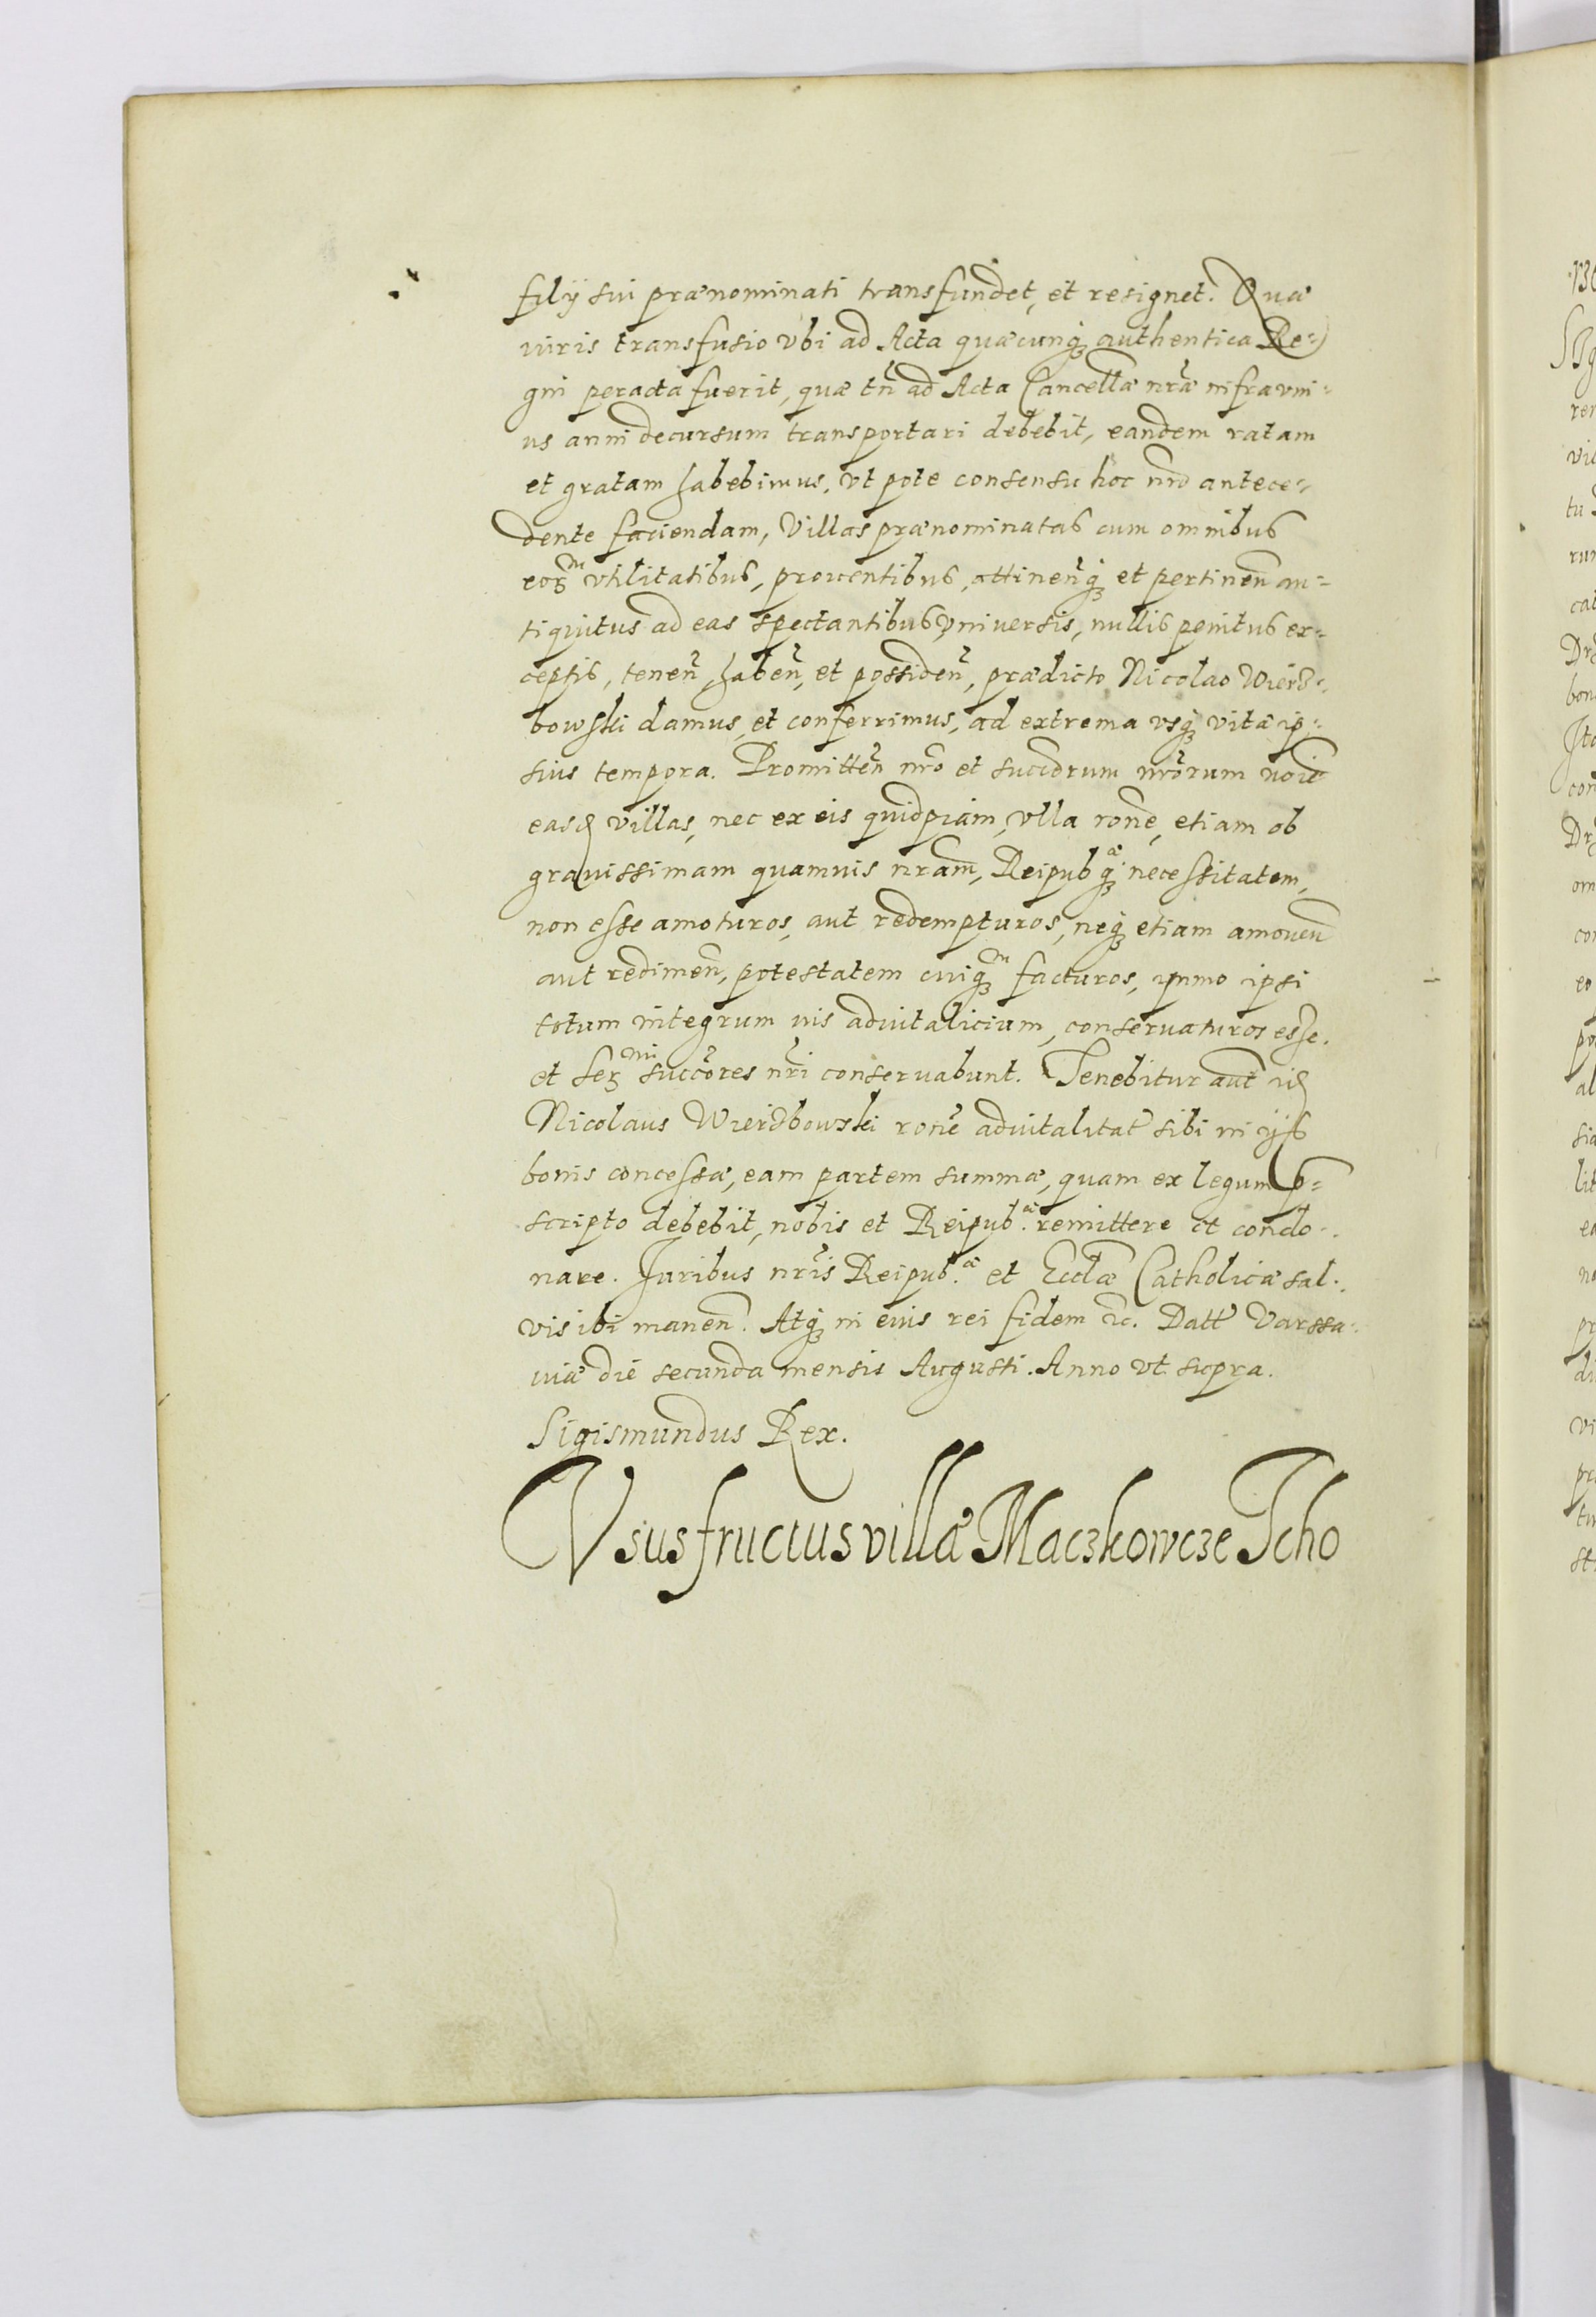 filÿ sui prænominati transfundet, et resignet. Quæ
iuris transfusio vbi ad Acta quæcunq; authentica Re=
gni peracta fuerit, quæ tñ ad Acta Cancellæ nræ infra vni=
us anni decursum transportari debebit, eandem ratam
et gratam habebimus, vt pote consensu hoc nro antece=
dente faciendam, Villas prænominatas cum omnibus
eorum vtilitatibus, prouentibus, attinen̄q; et pertinen̄ an=
tiquitus ad eas spectantibus vniuersis, nullis penitus ex=
ceptis, tenen̄, haben̄, et possiden̄, prædicto Nicolao Wierz=
bowski damus, et conferrimus, ad extrema vsq; vitæ ip=
sius tempora. Promitten̄ nro et succrum nrorum noie
easd villas, nec ex eis quidpiam, vlla rone, etiam ob
grauissimam quamuis nram, Reipubæq; necessitatem,
non esse amoturos, aut redempturos, neq; etiam amouen̄
aut redimen̄, potestatem cuiqm facturos, ymmo ipsi
totum integrum ius aduitalicium, conseruaturos esse.
et Sermi succores nri conseruabunt. Tenebitur aut id
Nicolaus Wierzbowski rone aduitalitat sibi in ijs
bonis concessæ, eam partem summæ, quam ex legum p=
scripto debebit, nobis et Reipub.æ remittere et condo=
nare. Juribus nris Reipub.æ et Ecclæ Catholicæ sal=
vis ibi manen̄. Atq; in eius rei fidem &c. Datt Varssa=
uiæ die secunda mensis Augusti. Anno vt supra.
Sigismundus Rex.
Vsusfructus villæ Maczkowcze Tcho